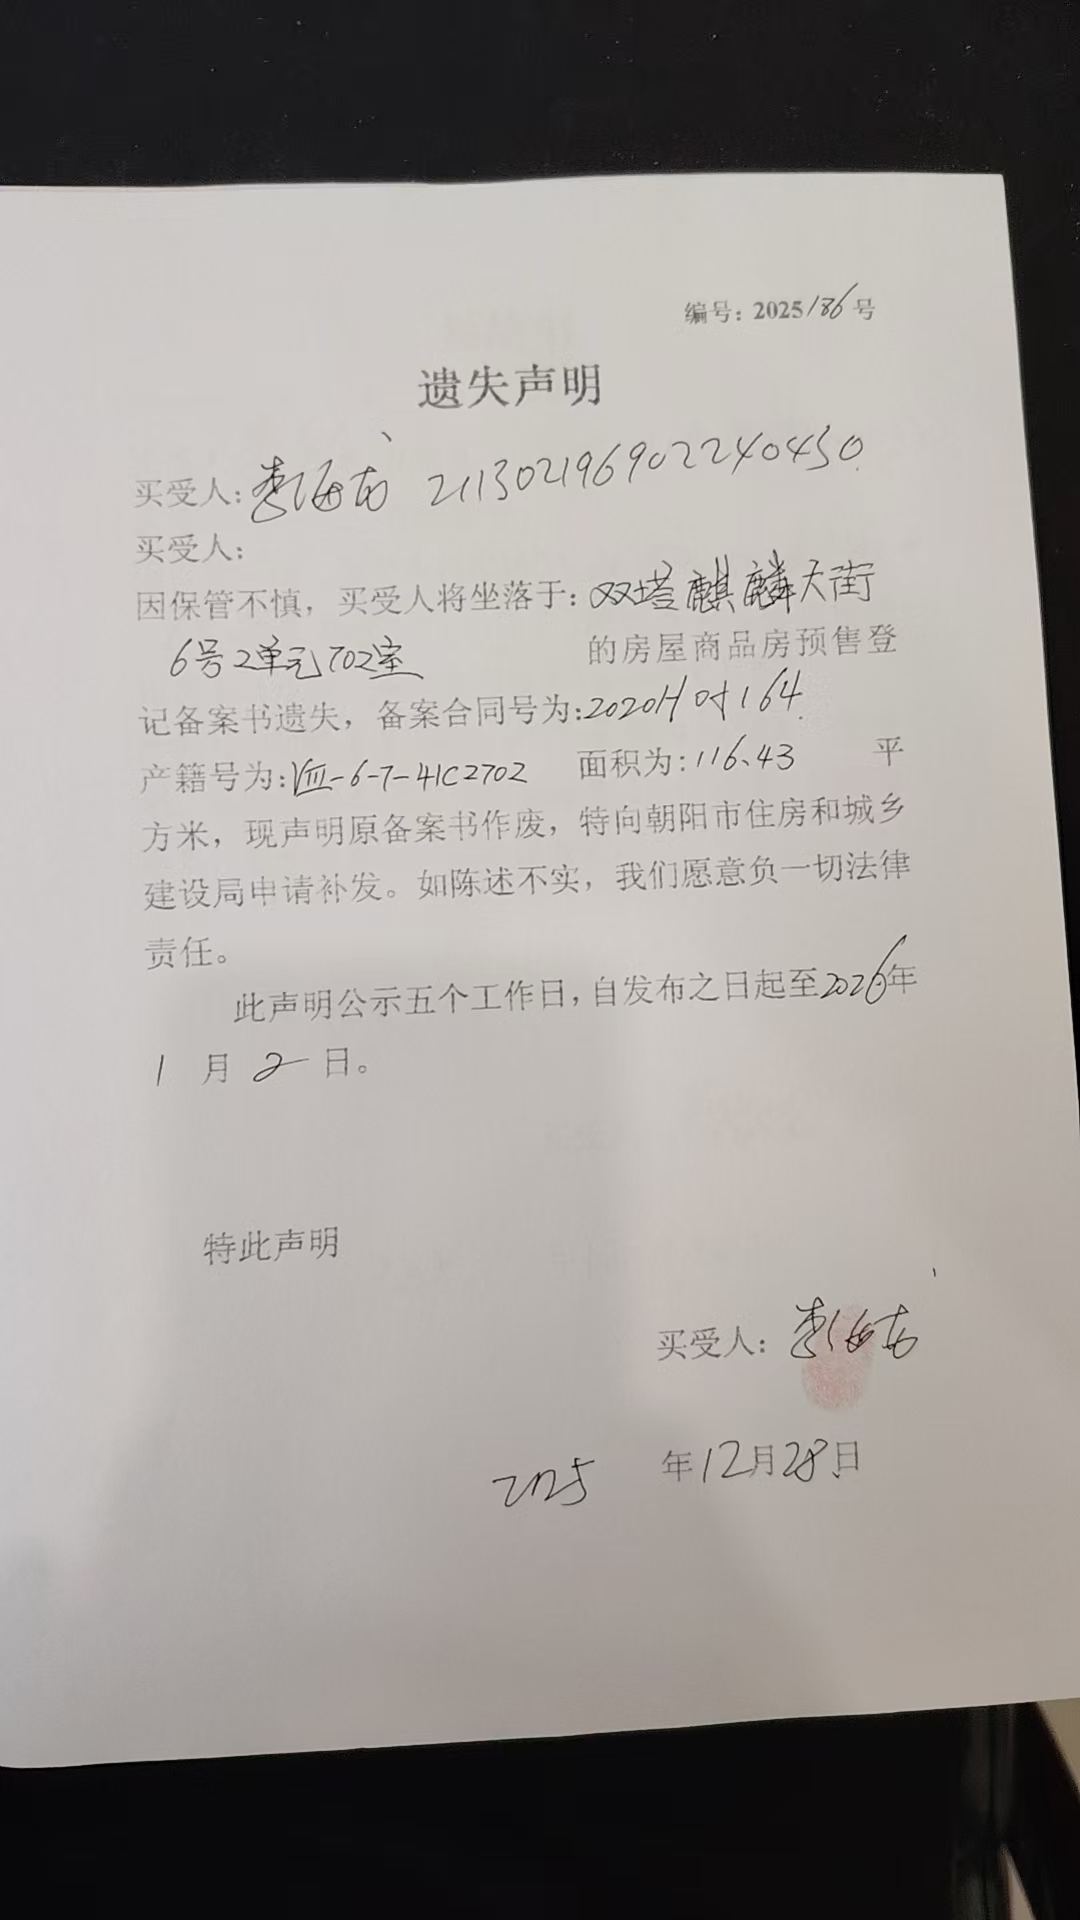 编号：2025186号
遗失声明
买受人：李海 211302196902240430
买受人：
因保管不慎，买受人将坐落于：双塔麒麟大街
6号2单元702室 的房屋商品房预售登
记备案书遗失，备案合同号为:2020H 164
产籍号为:Ⅷ-6-7-41C2702 面积为:116.43 平
方米，现声明原备案书作废，特向朝阳市住房和城乡
建设局申请补发。如陈述不实，我们愿意负一切法律
责任。
此声明公示五个工作日，自发布之日起至2026年
1月2日。
特此声明
买受人：李海
2025年12月28日